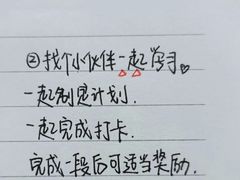 ②找个小伙伴一起学习
一起制定计划.
一起完成打卡.
完成一段后可适当奖励.